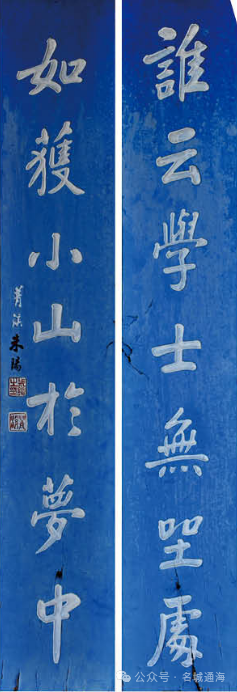 誰云學士無㘴處
如獲小山於夢中
公众号 · 名城通海